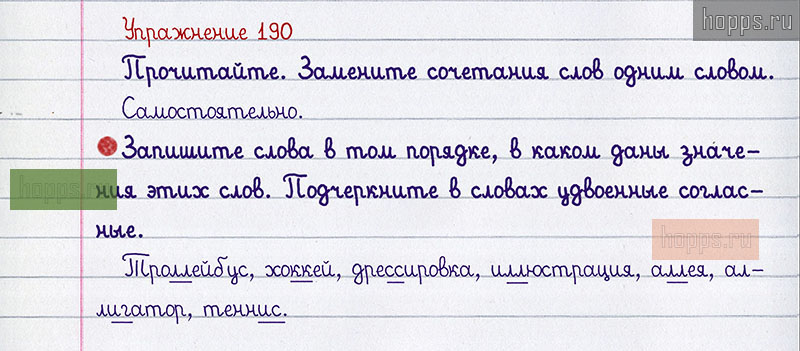 hopps.ru
Упражнение 190
Прочитайте. Замените сочетания слов одним словом.
Самостоятельно.
Запишите слова в том порядке, в каком даны значе-
hopps.ru
ния этих слов. Подчеркните в словах удвоенные соглас-
ные.
hopps.ru
Троллейбус, хоккей, дрессировка, иллюстрация, аллея, ал-
лигатор, теннис.